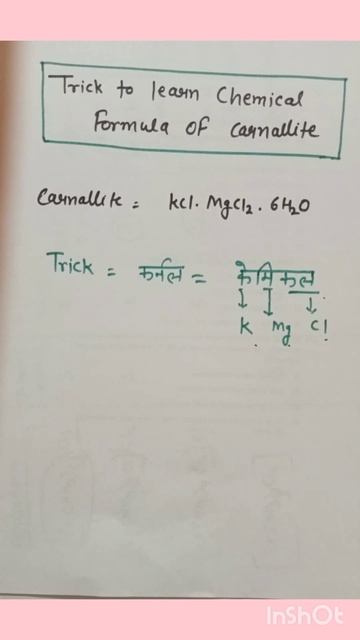 Trick to learn Chemical
Formula of Carnallite
Carnallite = kcl. MgCl2. 6H2O
Trick = कर्नल = केमिकल
↓ ↓ ↓
K Mg Cl
InShOt